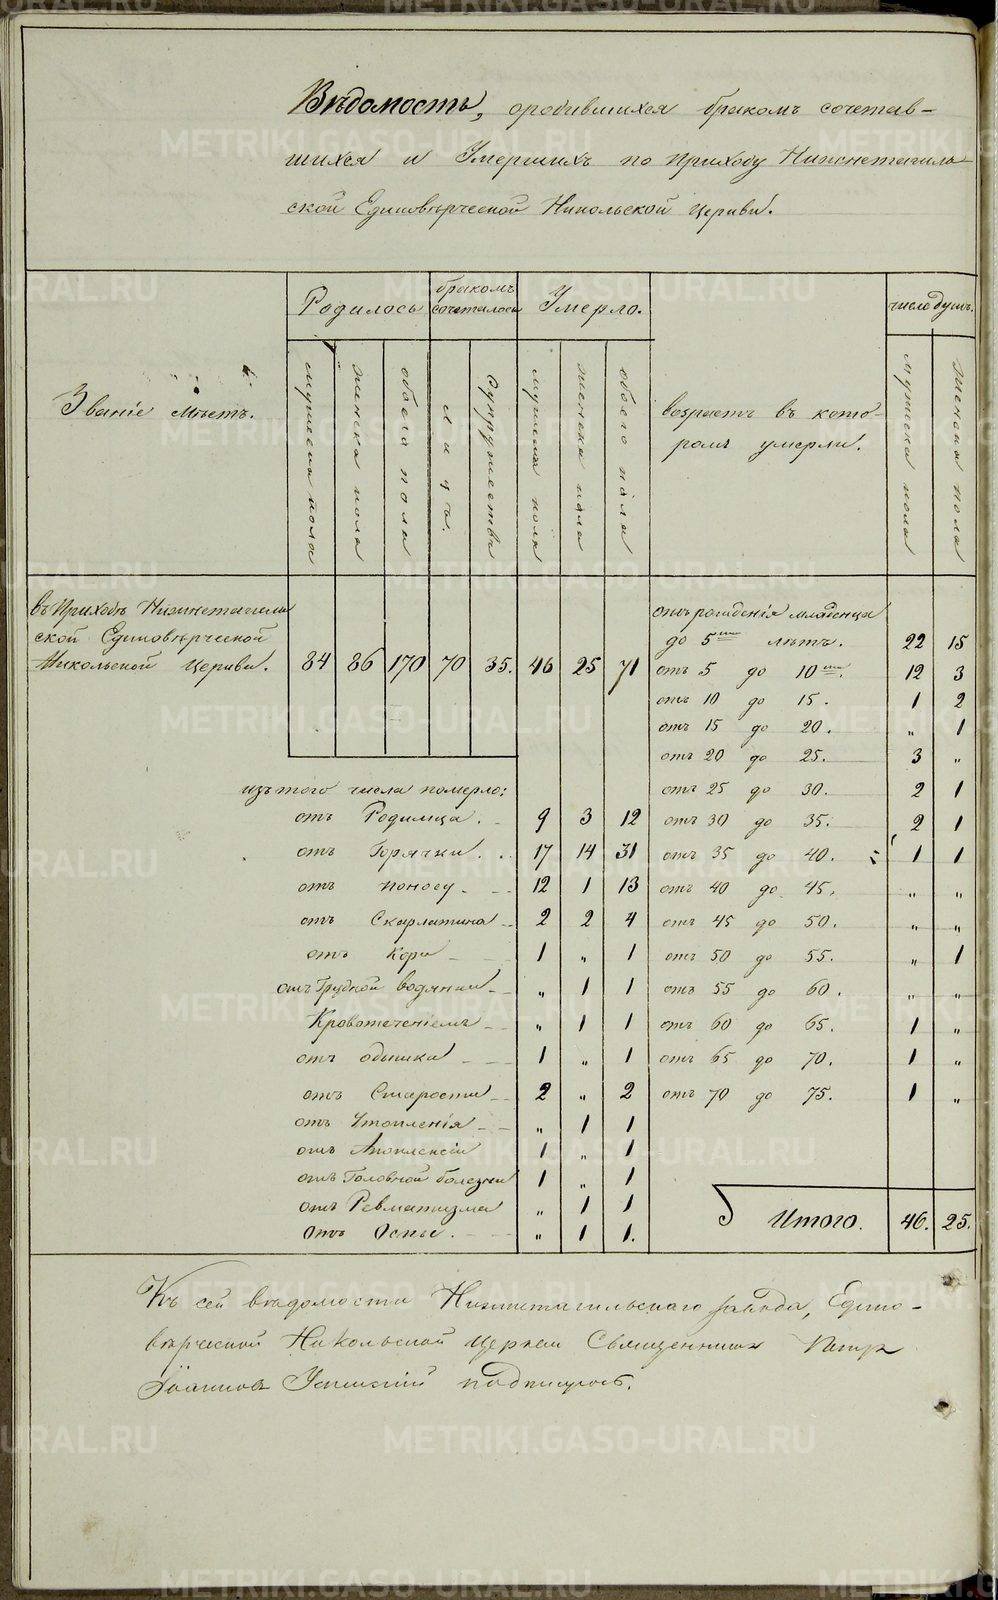 Вѣдомость, о родившихся бракомъ сочетав-
шихся и Умершихъ по приходу Нижнетагиль-
ской Единовѣрческой Никольской церкви.
Званіе мѣстъ.
Родилось
бракомъ сочеталось
Умерло.
возрастъ въ кото-
ромъ умерли.
число душъ.
мужеска пола
женска пола
обоего пола
лицъ.
супружествъ
мужеска пола
женска пола
обоего пола
мужеска пола
женска пола
въ Приходѣ Нижнетагиль
ской Единовѣрческой
Никольской церкви. 84 86 170 70 35. 46 25 71
отъ рожденія младенца
до 5ти лѣтъ. 22 15
отъ 5 до 10ти. 12 3
отъ 10 до 15. 1 2
отъ 15 до 20. „ 1
отъ 20 до 25. 3 „
отъ 25 до 30. 2 1
отъ 30 до 35. 2 1
отъ 35 до 40. 1 1
отъ 40 до 45. „ „
отъ 45 до 50. „ „
отъ 50 до 55. „ 1
отъ 55 до 60. „ „
отъ 60 до 65. 1 „
отъ 65 до 70. 1 „
отъ 70 до 75. 1 „
Итого. 46. 25.
изъ того числа померло:
отъ Родимца. 9 3 12
отъ Горячки. 17 14 31
отъ поносу. 12 1 13
отъ Скарлатина 2 2 4
отъ Кори 1 „ 1
отъ Грудной водянки „ 1 1
Кровотеченіемъ „ 1 1
отъ одышки 1 „ 1
отъ Старости 2 „ 2
отъ Утопленія „ 1 1
отъ Апоплексіи 1 „ 1
отъ Головной болезни 1 „ 1
отъ Ревматизма „ 1 1
отъ Оспы. „ 1 1.
Къ сей вѣдомости Нижнетагильскаго завода, Едино-
вѣрческой Никольской Церкви Священникъ Петръ
Іоанновъ подписуюсь.
METRIKI.GASO-URAL.RU